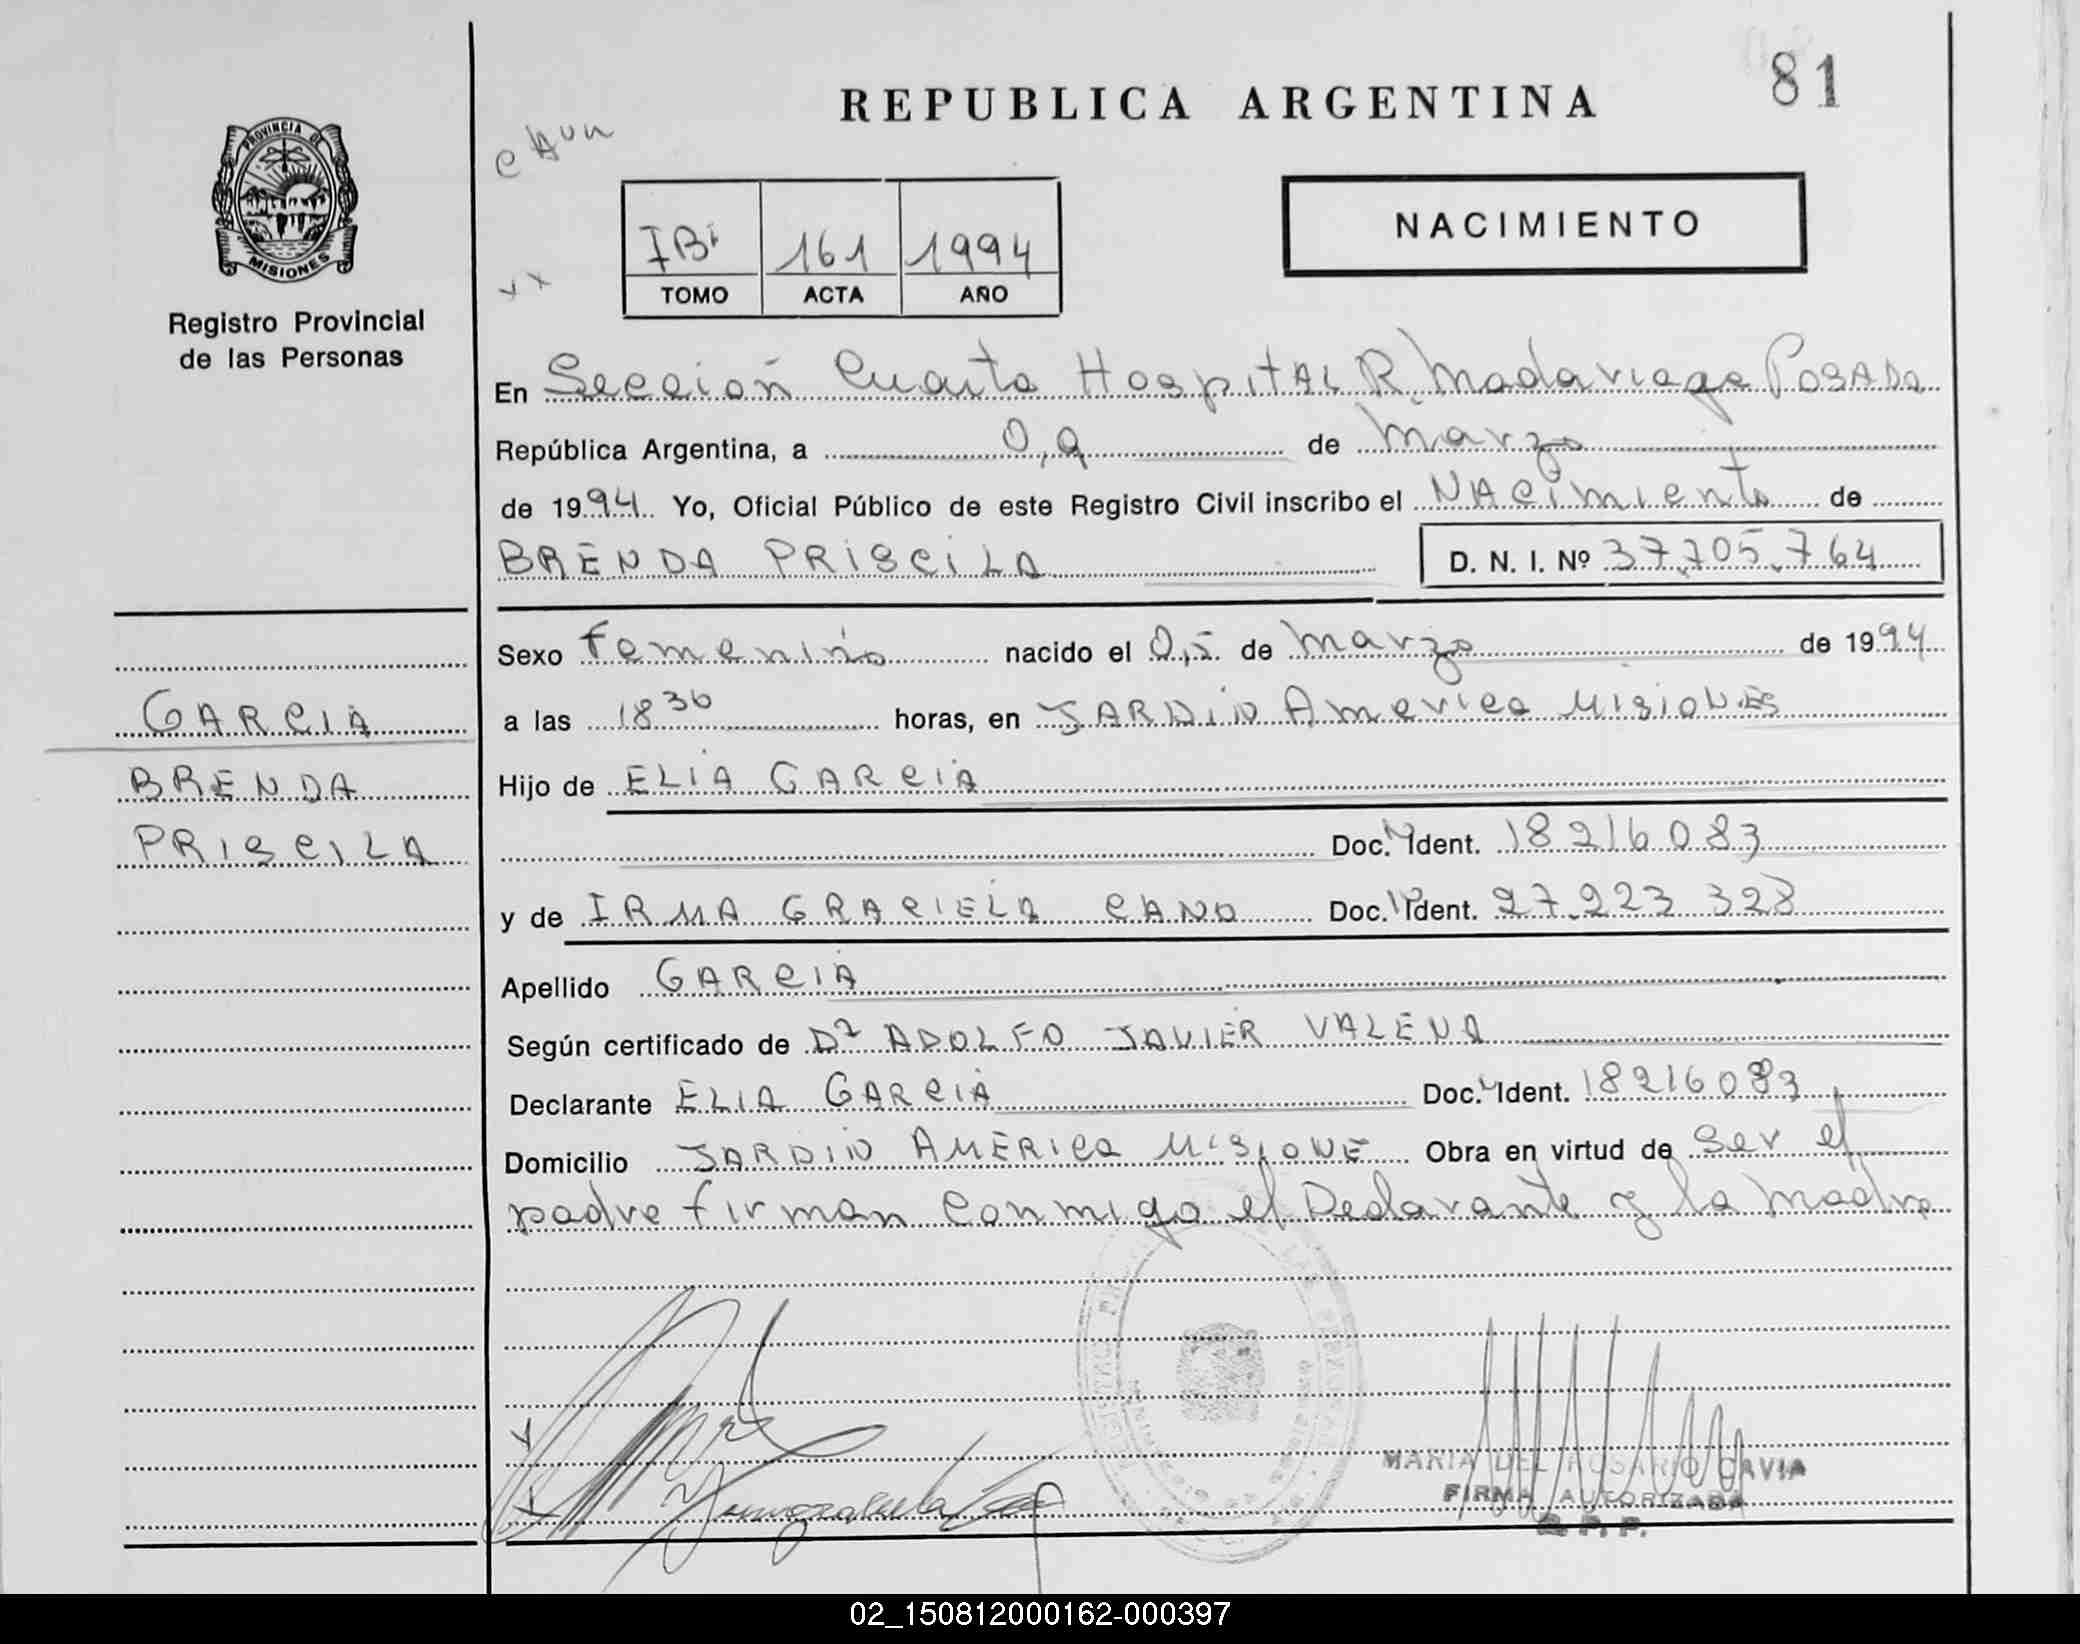 81
REPUBLICA ARGENTINA
PROVINCIA DE
MISIONES
Registro Provincial
de las Personas
IBi 161 1994
TOMO ACTA AÑO
NACIMIENTO
En Sección Cuarta Hospital R Madariaga Posada
República Argentina, a 0,9 de Marzo
de 1994. Yo, Oficial Público de este Registro Civil inscribo el NAcimiento de
BRENDA PRISCILA
D. N. I. Nº 37.705.764
Sexo Femenino nacido el 0,5 de Marzo de 1994
a las 18 30 horas, en JARDIN America MISIONES
Hijo de ELIA GARCIA
Doc. Ident. 18216083
y de IRMA GRACIELA CANO Doc. Ident. 27.223 328
Apellido GARCIA
Según certificado de Dr ADOLFO JAVIER VALENA
Declarante ELIA GARCIA Doc. Ident. 18216083
Domicilio JARDIN AMERICA MISIONE Obra en virtud de Ser el
padre firman conmigo el Declarante y la Madre
GARCIA
BRENDA
PRISCILA
MARIA DEL ROSARIO GAVIA
FIRMA AUTORIZADA
R. P. P.
02_150812000162-000397